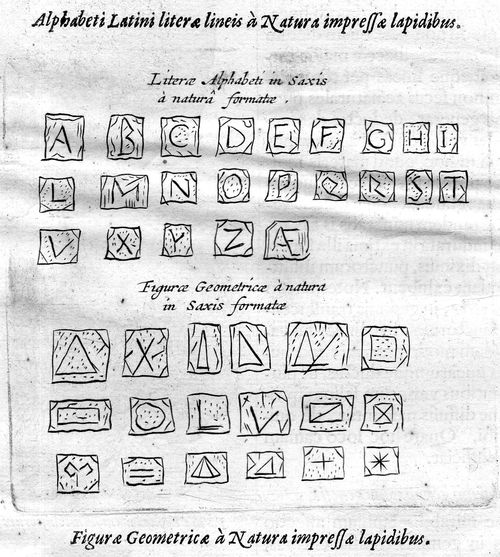 Alphabeti Latini literæ lineis à Natura impreſſæ lapidibus.
Literæ Alphabeti in Saxis
à naturâ formatæ.
A B C D E F G H I
L M N O P Q R S T
V X Y Z Æ
Figuræ Geometricæ à natura
in Saxis formatæ
Figuræ Geometricæ à Natura impreſſæ lapidibus.